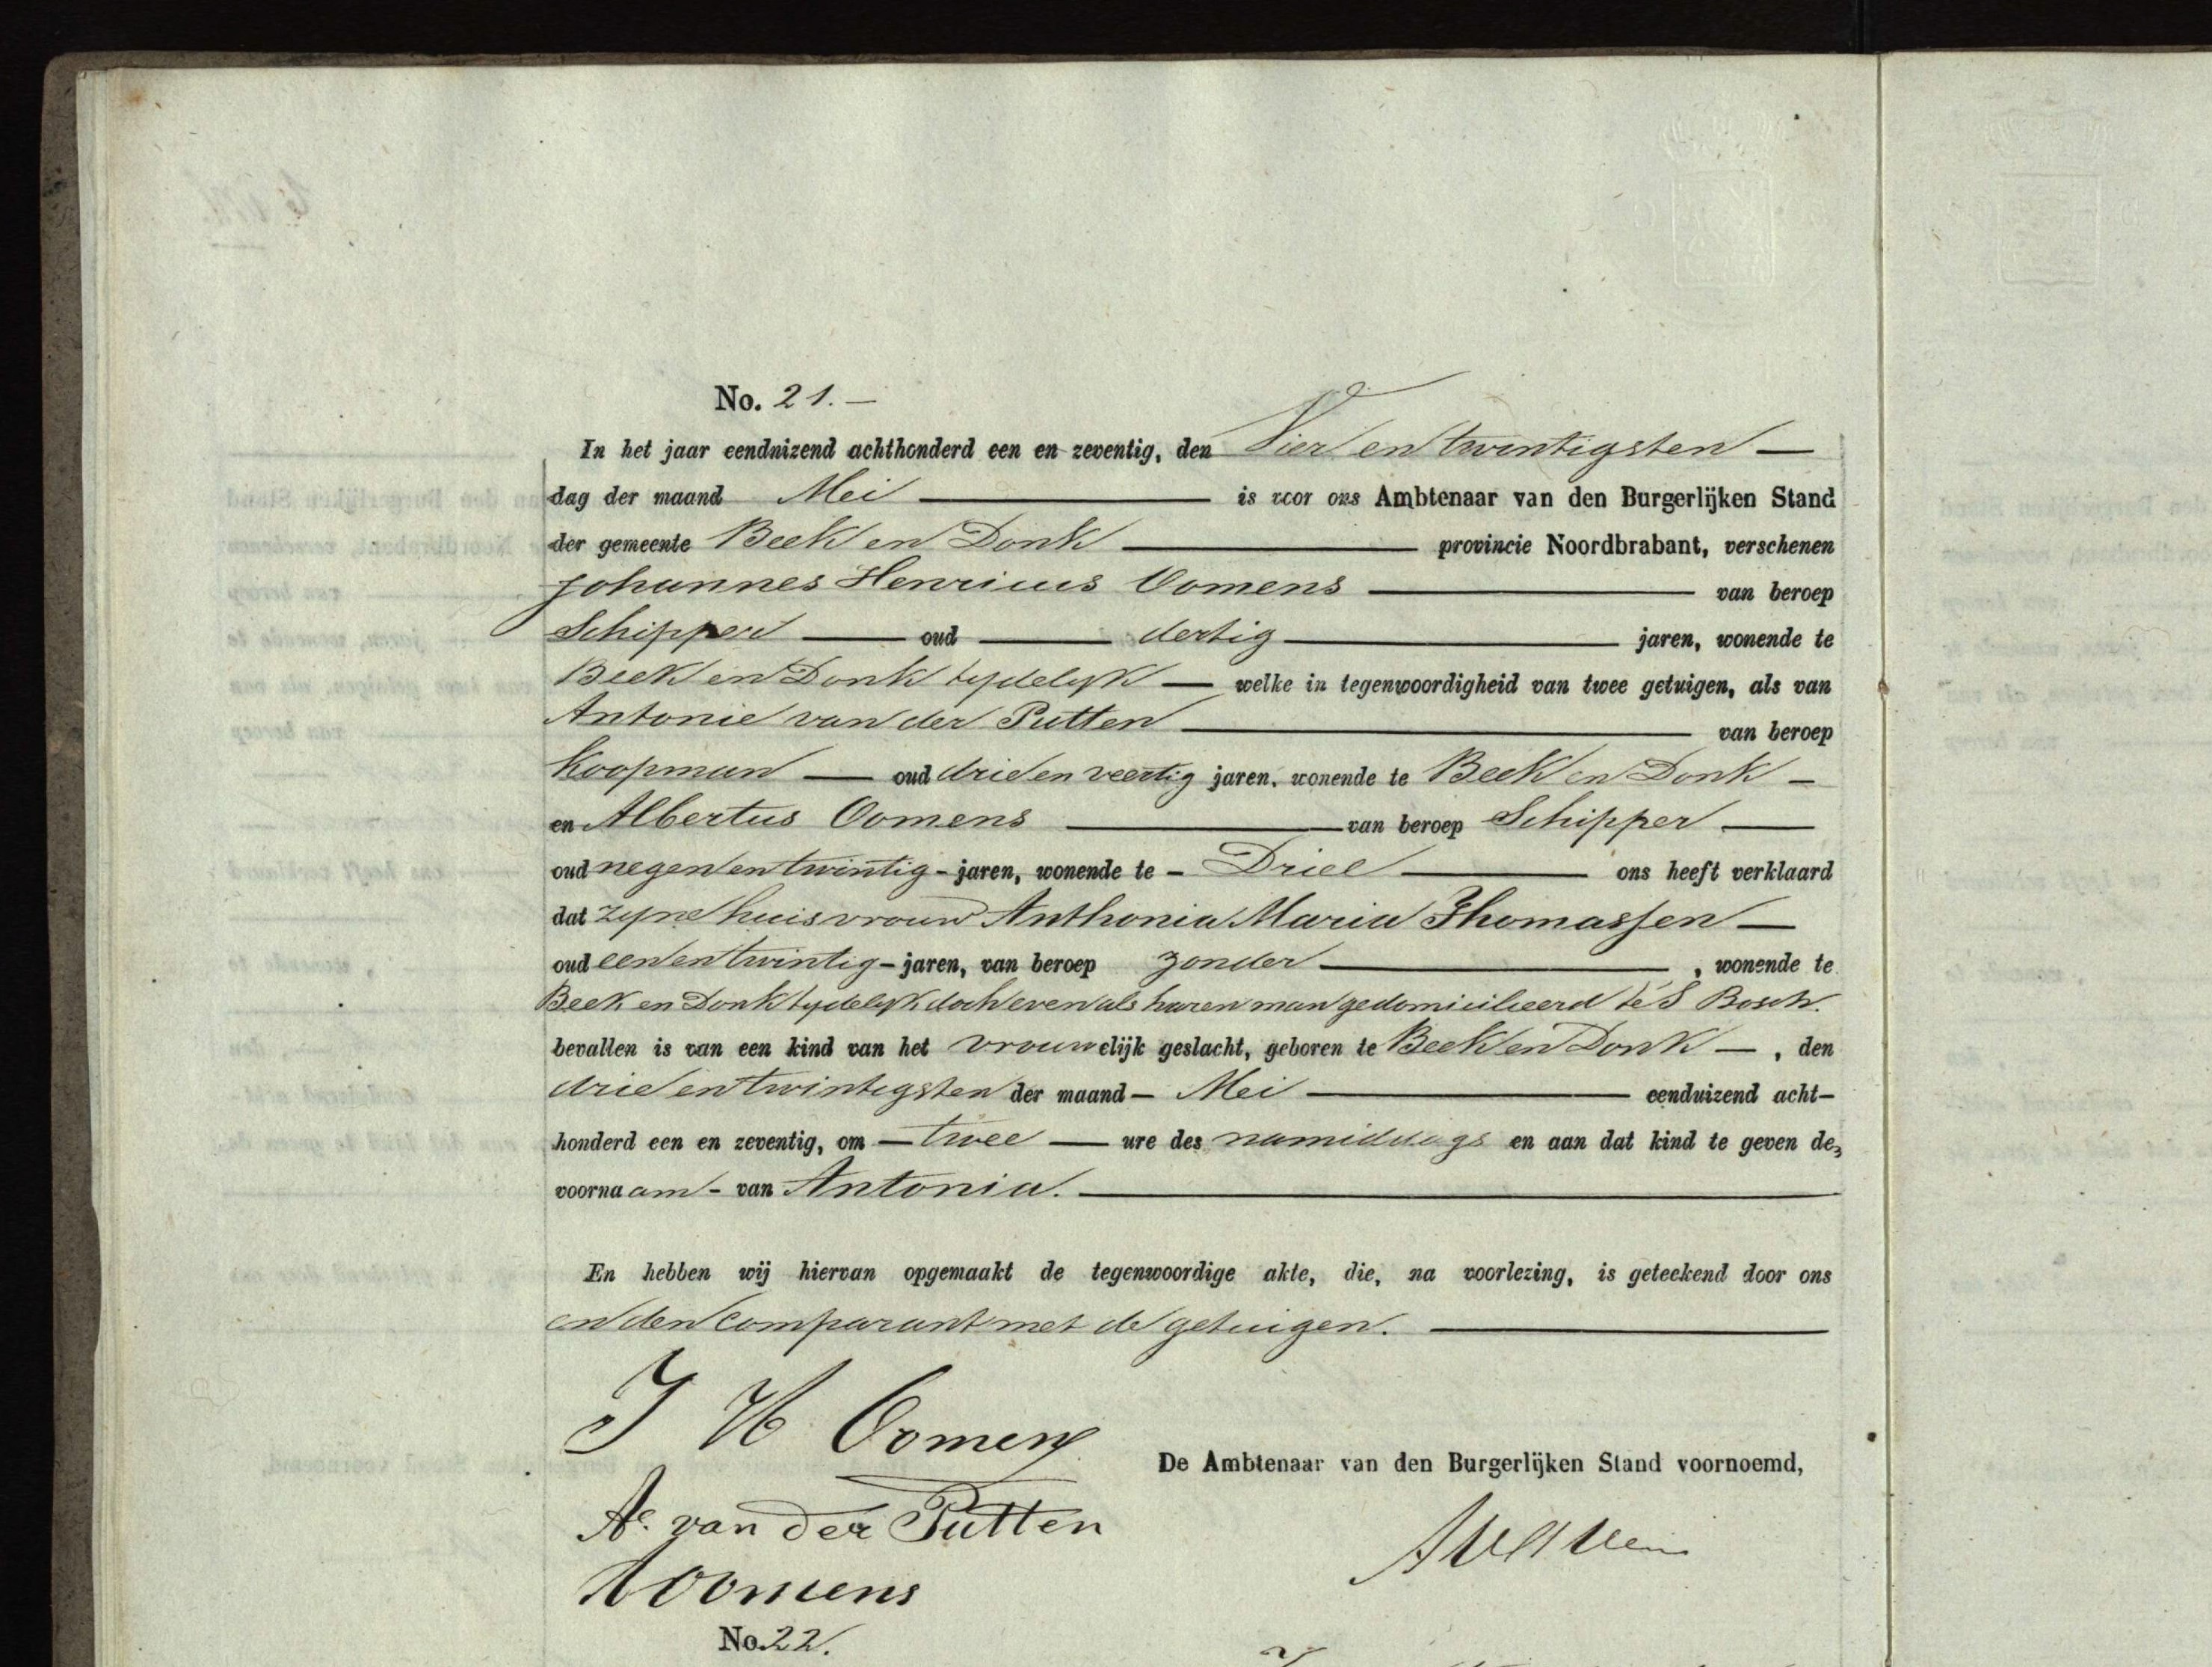 No. 21. —
In het jaar eenduizend achthonderd een en zeventig, den Vier en twintigsten —
dag der maand Mei — is voor ons Ambtenaar van den Burgerlijken Stand
der gemeente Beek en Donk — provincie Noordbrabant, verschenen
Johannes Henricus Oomens — van beroep
Schipper — oud — dertig — jaren, wonende te
Beek en Donk tydelyk — welke in tegenwoordigheid van twee getuigen, als van
Antonie van der Putten — van beroep
Koopman — oud drie en veertig jaren, wonende te Beek en Donk —
en Albertus Oomens — van beroep Schipper —
oud negen en twintig - jaren, wonende te - Driel — ons heeft verklaard
dat zyne huisvrouw Anthonia Maria Thomassen —
oud een en twintig - jaren, van beroep zonder — , wonende te
Beek en Donk tydelyk doch even als haren man gedomicilieerd te S Bosch.
bevallen is van een kind van het vrouwelijk geslacht, geboren te Beek en Donk — , den
drie en twintigsten der maand — Mei — eenduizend acht-
honderd een en zeventig, om — twee — ure des namiddags en aan dat kind te geven de
voornaam - van Antonia. —
En hebben wij hiervan opgemaakt de tegenwoordige akte, die, na voorlezing, is geteekend door ons
en den comparant met de getuigen. —
J H Oomens
De Ambtenaar van den Burgerlijken Stand voornoemd,
Ae. van der Putten
A Oomens
No. 22.